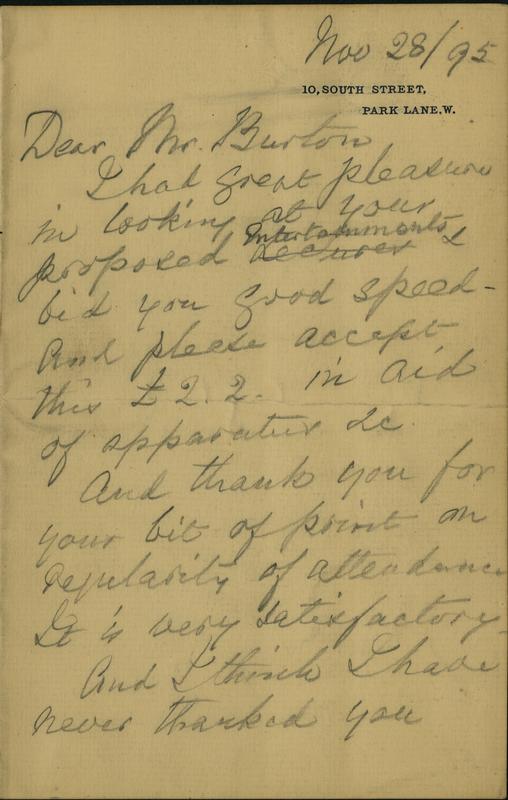 Nov 28/95
10, SOUTH STREET,
PARK LANE. W.
Dear Mr. Burton
I had great pleasure
in looking at your
Entertainments
proposed Lectures &
bid you good speed -
And please accept
this £2. 2. in aid
of apparatus &c
And thank you for
your bit of print on
regularity of attendance
It is very satisfactory -
And I think I have
never thanked you